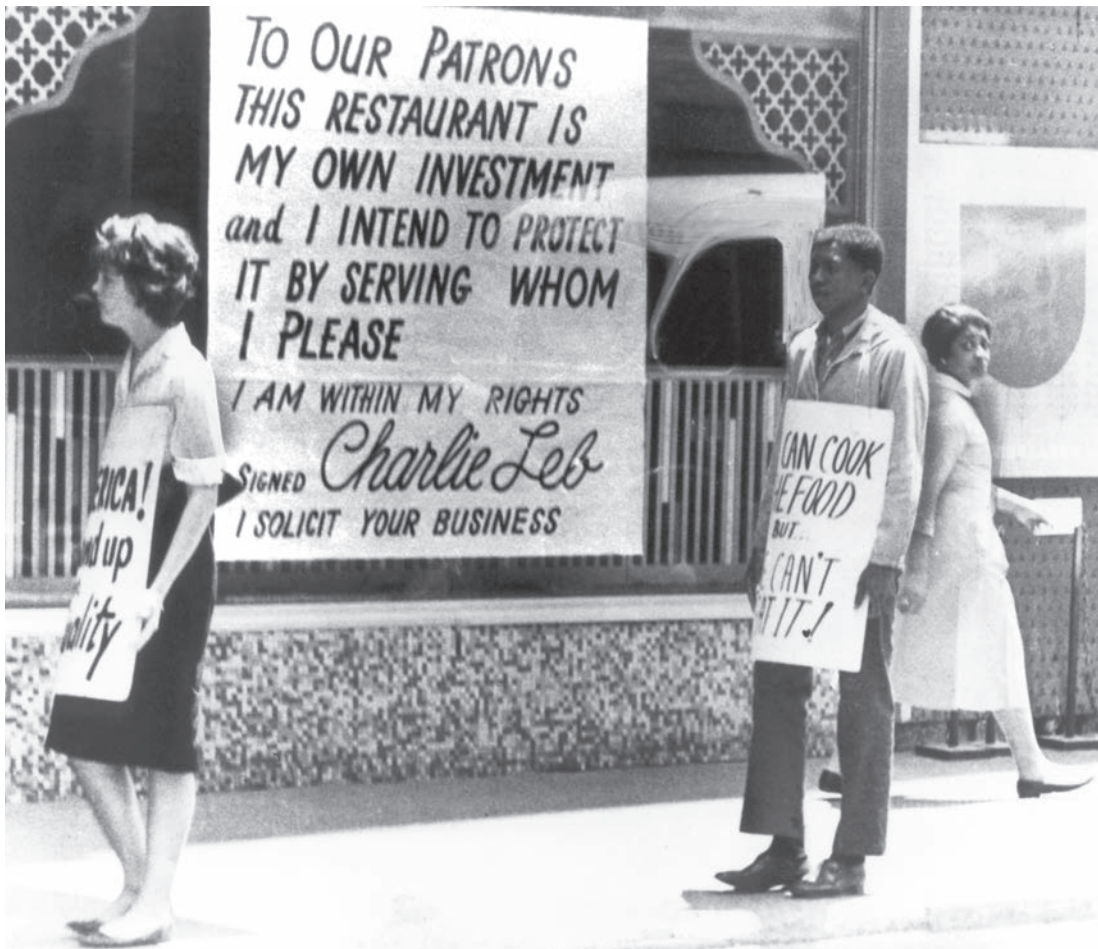 TO OUR PATRONS
THIS RESTAURANT IS
MY OWN INVESTMENT
and I INTEND TO PROTECT
IT BY SERVING WHOM
I PLEASE
I AM WITHIN MY RIGHTS
SIGNED Charlie Leb
I SOLICIT YOUR BUSINESS
ERICA!
nd up
ality
CAN COOK
E FOOD
BUT...
CAN'T
AT IT!